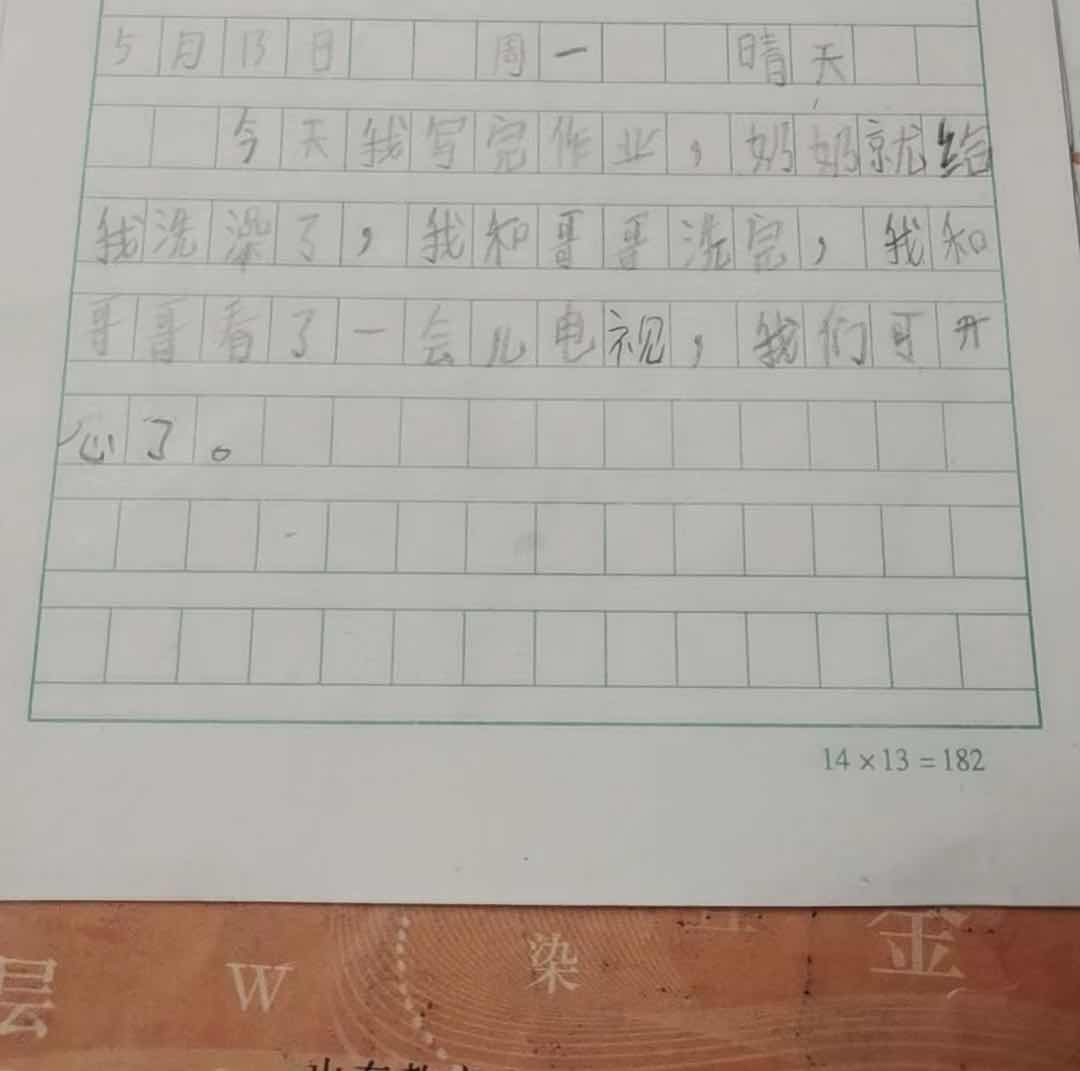 5月13日 周一 晴天
今天我写完作业，奶奶就给
我洗澡了，我和哥哥洗完，我和
哥哥看了一会儿电视，我们可开
心了。
14×13=182
层 W 染 金